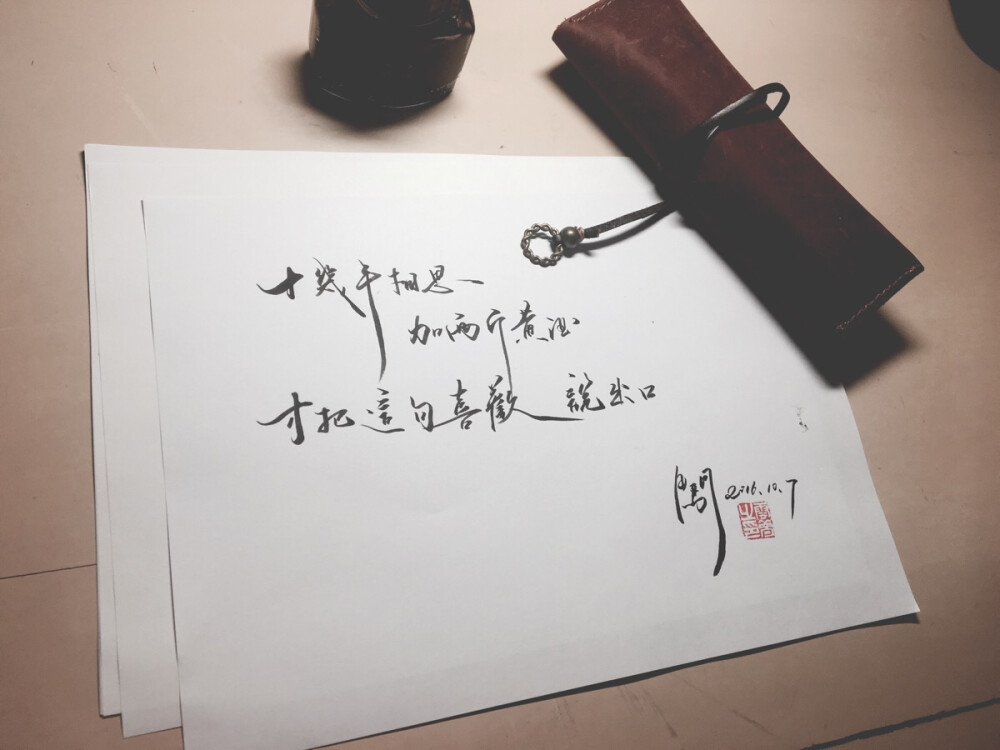 十幾年相思
加兩斤黃酒
才把這句喜歡 説出口
2016.10.7